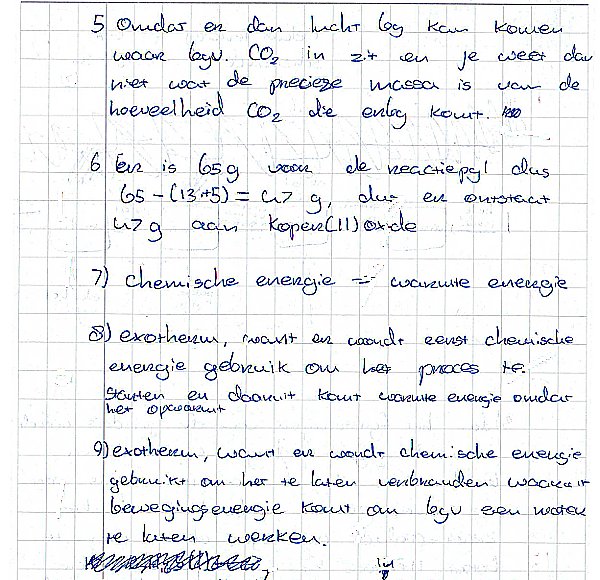 5 Omdat er dan lucht bij kan komen
waar bijv. CO₂ in zit en je weet dan
niet wat de precieze massa is van de
hoeveelheid CO₂ die erbij komt.
6 Er is 65g voor de reactiepijl dus
65 - (13+5) = 47 g, dus er ontstaat
47 g aan koper(II)oxide
7) chemische energie → warmte energie
8) exotherm, want er wordt eerst chemische
energie gebruik om het proces te
starten en daaruit komt warmte energie omdat
het opwarmt
9) exotherm, want er wordt chemische energie
gebruikt om het te laten verbranden waaruit
bewegingsenergie komt om bijv een motor
te laten werken.